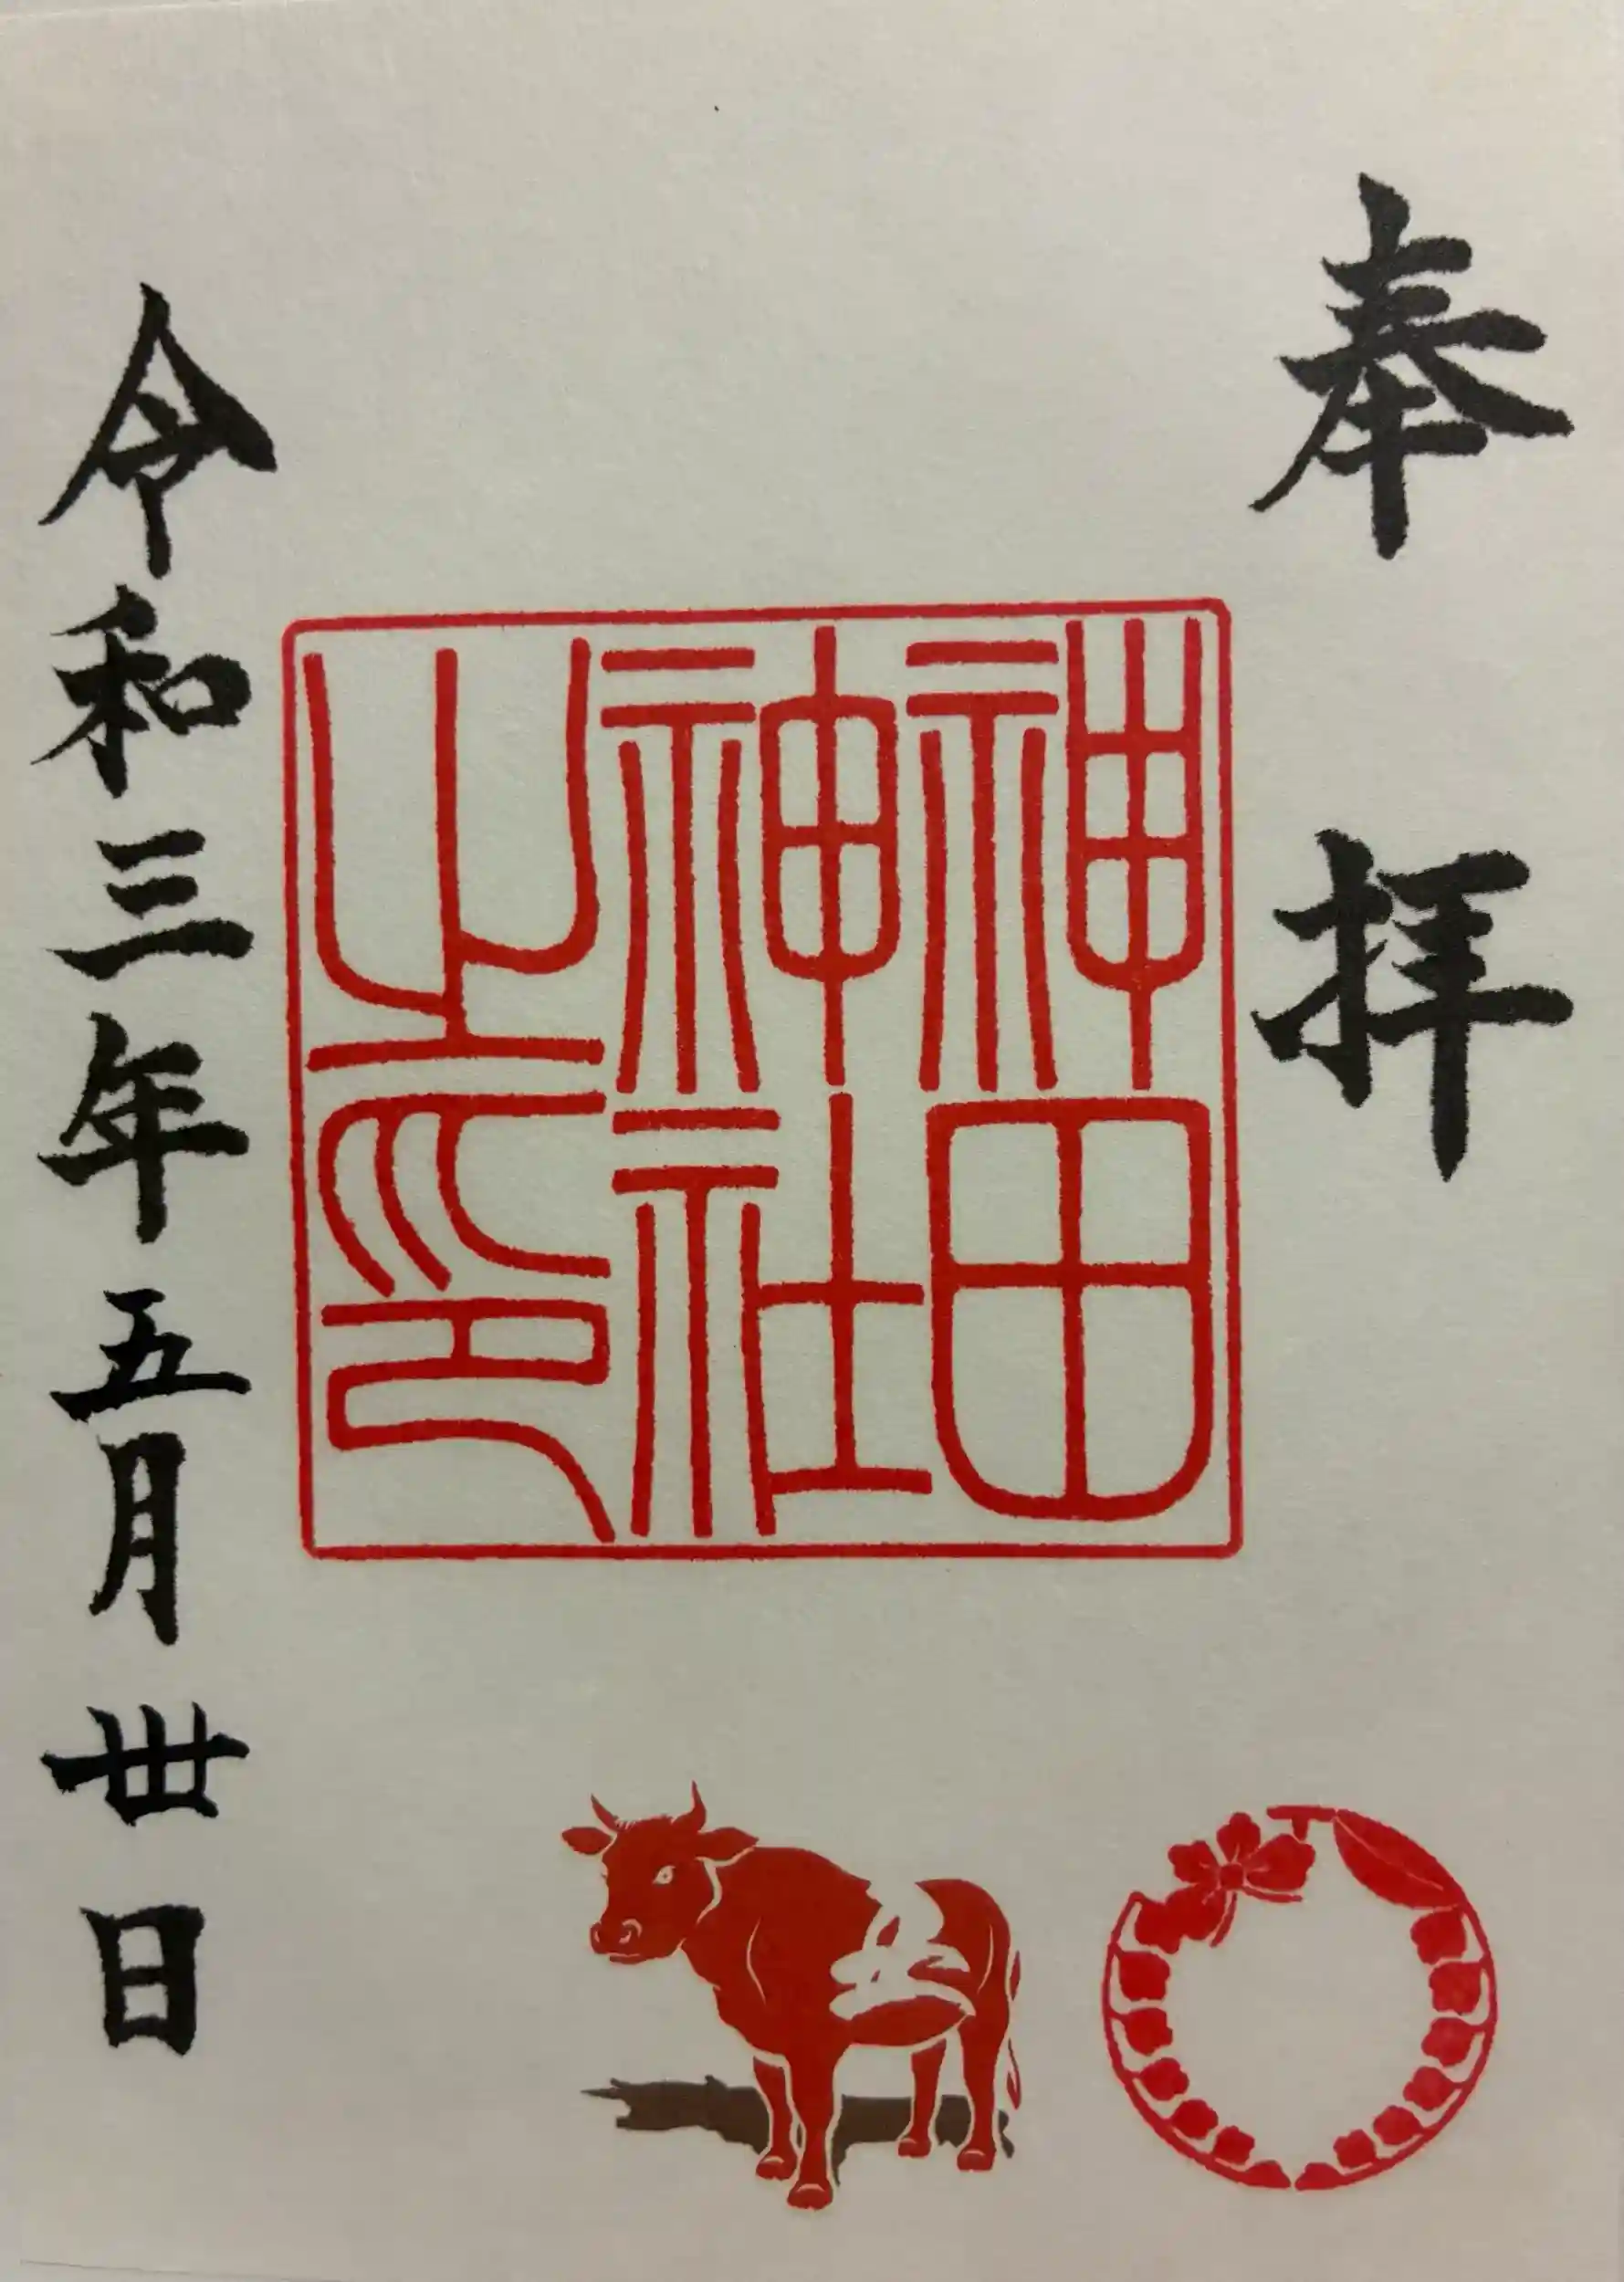 奉拝
神田
神社
之印
令和三年五月丗日